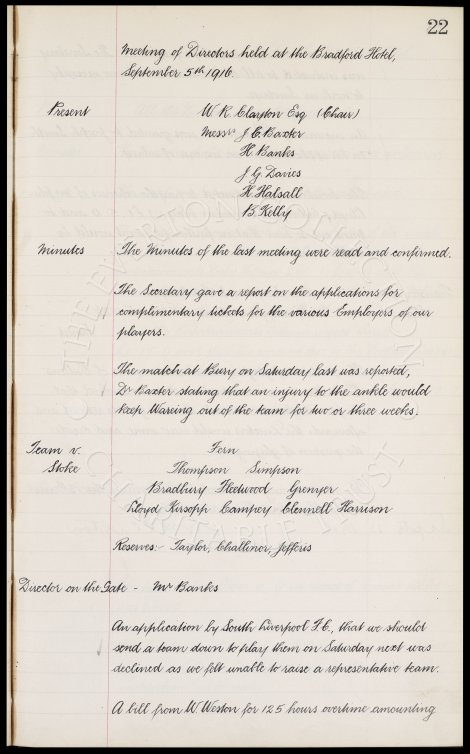 22
Meeting of Directors held at the Bradford Hotel,
September 5th 1916.
Present W. R. Clayton Esq (Chair)
Messrs J. C. Baxter
H. Banks
J. G. Davies
H. Halsall
B. Kelly
Minutes The Minutes of the last meeting were read and confirmed.
The Secretary gave a report on the applications for
complimentary tickets for the various Employers of our
players.
The match at Bury on Saturday last was reported,
Dr Baxter stating that an injury to the ankle would
keep Wareing out of the team for two or three weeks.
Team v. Fern
Stoke Thompson Simpson
Bradbury Fleetwood Grenyer
Lloyd Kirsopp Campey Clennell Harrison
Reserves:- Taylor, Challinor, Jefferis
Director on the Gate - Mr Banks
An application by South Liverpool F.C., that we should
send a team down to play them on Saturday next was
declined as we felt unable to raise a representative team.
A bill from W. Weston for 125 hours overtime amounting
THE EVERTON COLLECTION
CHARITABLE TRUST